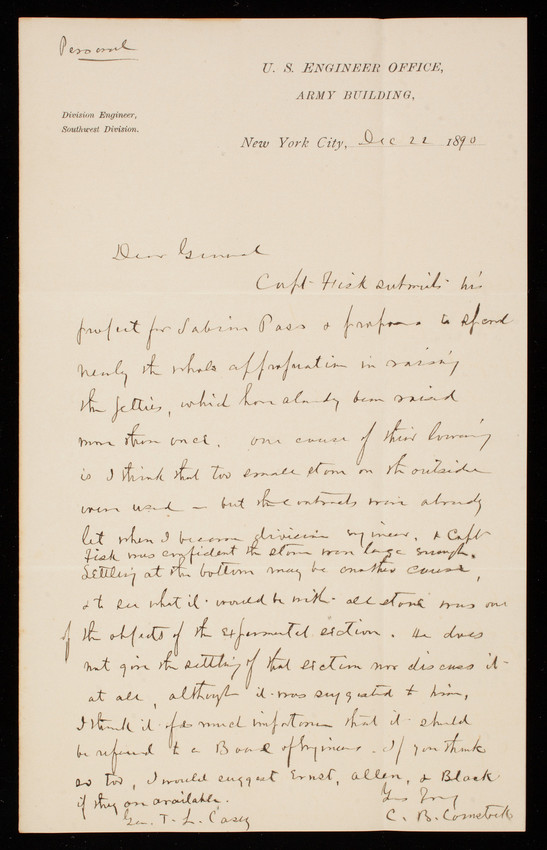 Personal
U. S. ENGINEER OFFICE,
ARMY BUILDING,
Division Engineer,
Southwest Division.
New York City, Dec 22 1890
Dear General
Capt Fisk submits his
project for Sabine Pass & proposes to spend
nearly the whole appropriation in raising
the jetties, which have already been raised
more than once. One cause of their lowering
is I think that too small stone on the outside
were used – but the contracts were already
let when I became division engineer, & Capt
Fisk was confident the stone was large enough.
Settling at the bottom may be another cause,
& to see what it would be with all stone was one
of the objects of the experimental section. He does
not give the settling of that section nor discuss it
at all, although it was suggested to him.
I think it of so much importance that it should
be referred to a Board of Engineers. If you think
so too, I would suggest Ernst, Allen, & Black
if they are available.
Yrs Truly
Gen. T. L. Casey
C. B. Comstock